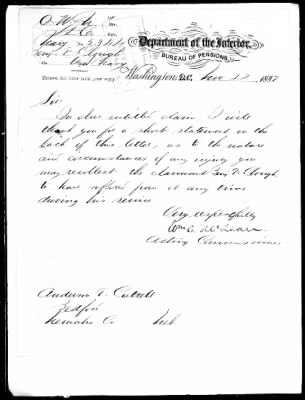 O. W. &
No.
Benj. F. Clough
U.S. Navy
Return this letter with your reply.
Department of the Interior,
BUREAU OF PENSIONS,
Washington, D.C., 22, 1887
Sir:
In above entitled claim I will
thank you for a short statement on the
back of this letter, as to the nature
and circumstances of any injury you
may recollect the claimant Benj F Clough
to have suffered from at any time
during his service
Very respectfully
Wm E McLean
Acting Commissioner
Anderson T.
Bedford
Co